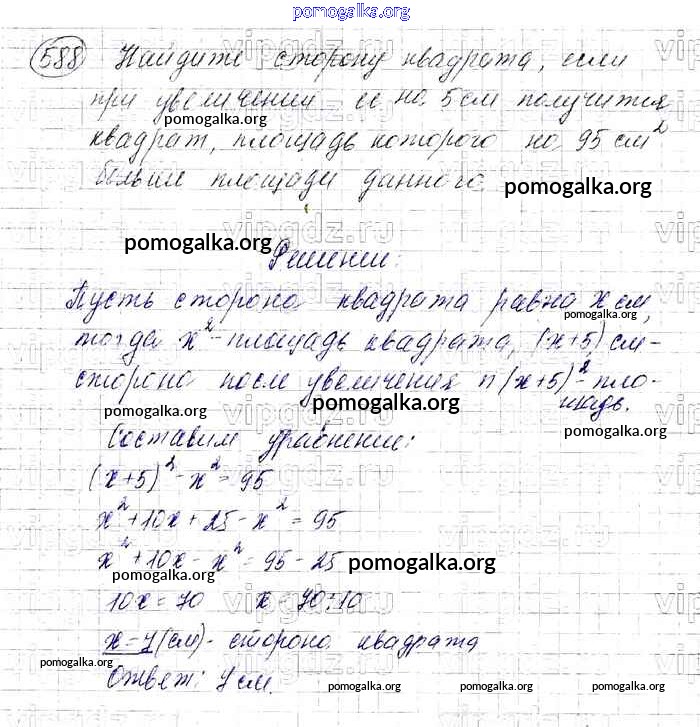 pomogalka.org
588 Найдите сторону квадрата, если
при увеличении ее на 5 см получится
pomogalka.org
квадрат, площадь которого на 95 см²
больше площади данного.
pomogalka.org
pomogalka.org
Решение:
Пусть сторона квадрата равна x см,
pomogalka.org
тогда x² - площадь квадрата, (x+5) см -
сторона после увеличения и (x+5)² - пло-
щадь.
pomogalka.org pomogalka.org
pomogalka.org
Составим уравнение:
(x+5)² - x² = 95
x² + 10x + 25 - x² = 95
x² + 10x - x² = 95 - 25
pomogalka.org
pomogalka.org
10x = 70 x = 70:10
x = 7 (см) - сторона квадрата
pomogalka.org pomogalka.org
Ответ: 7 см.
pomogalka.org pomogalka.org pomogalka.org